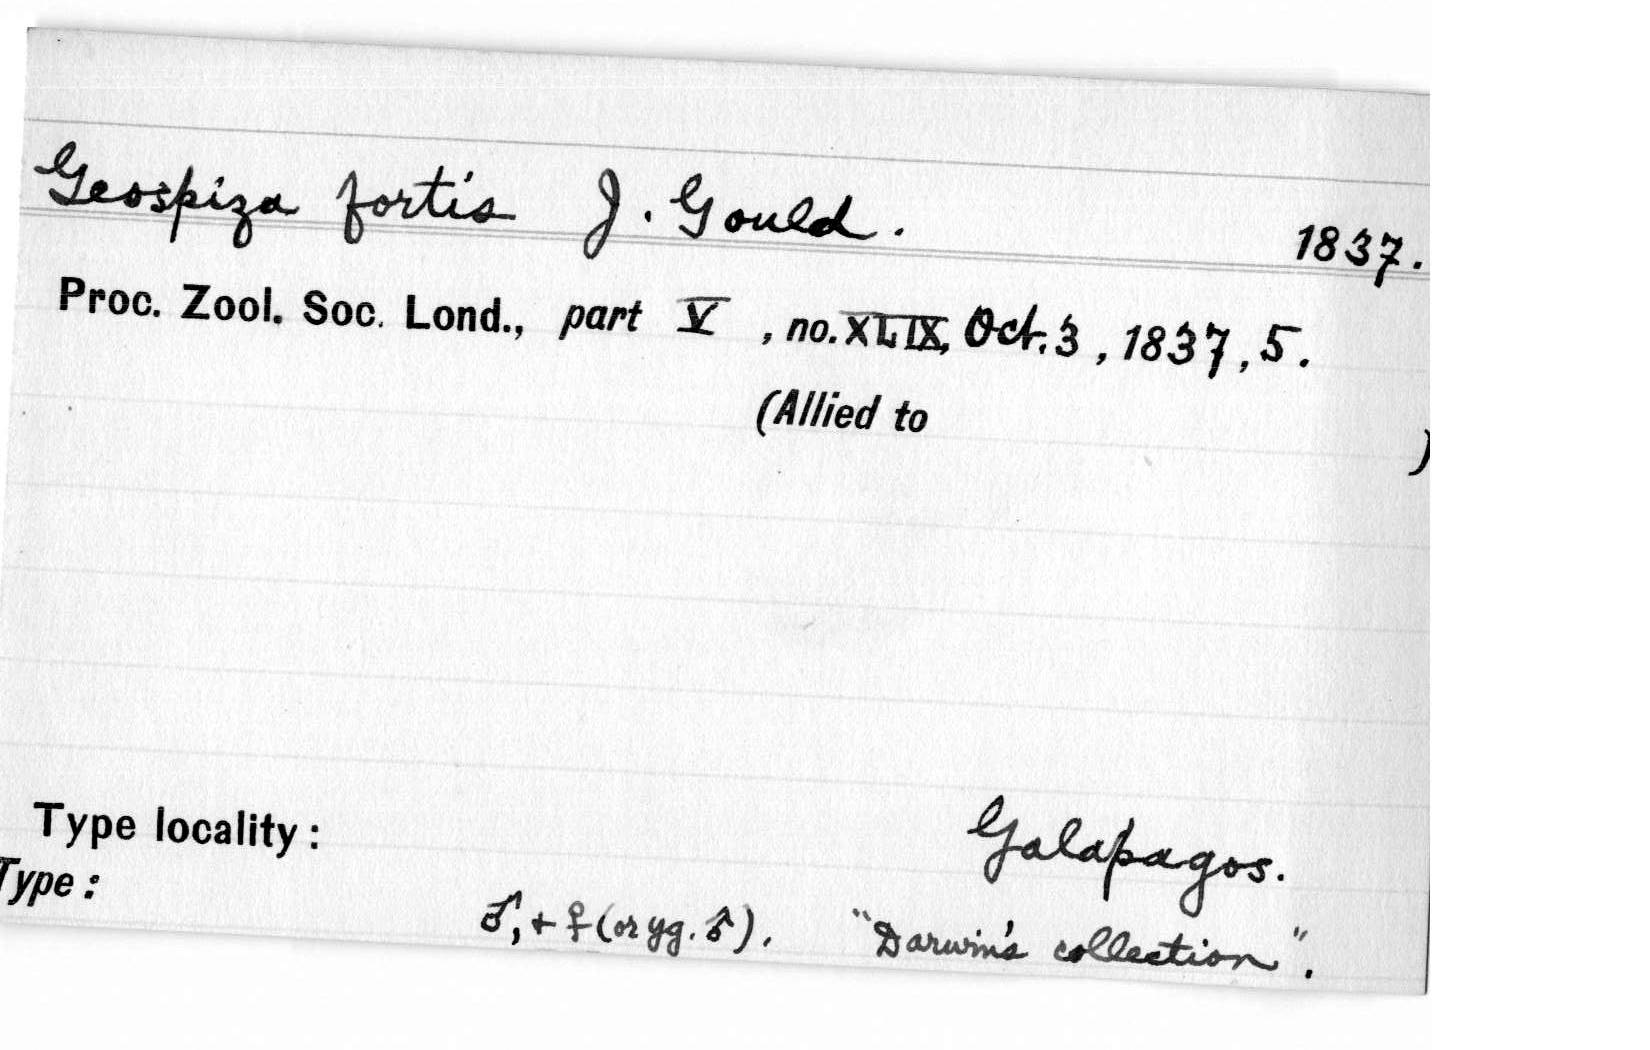 Geospiza fortis J. Gould. 1837.
Proc. Zool. Soc. Lond., part V, no. XLIX, Oct. 3, 1837, 5.
(Allied to )
Type locality: Galapagos.
Type: ♂, + ♀ (or yg. ♂). "Darwin's collection".